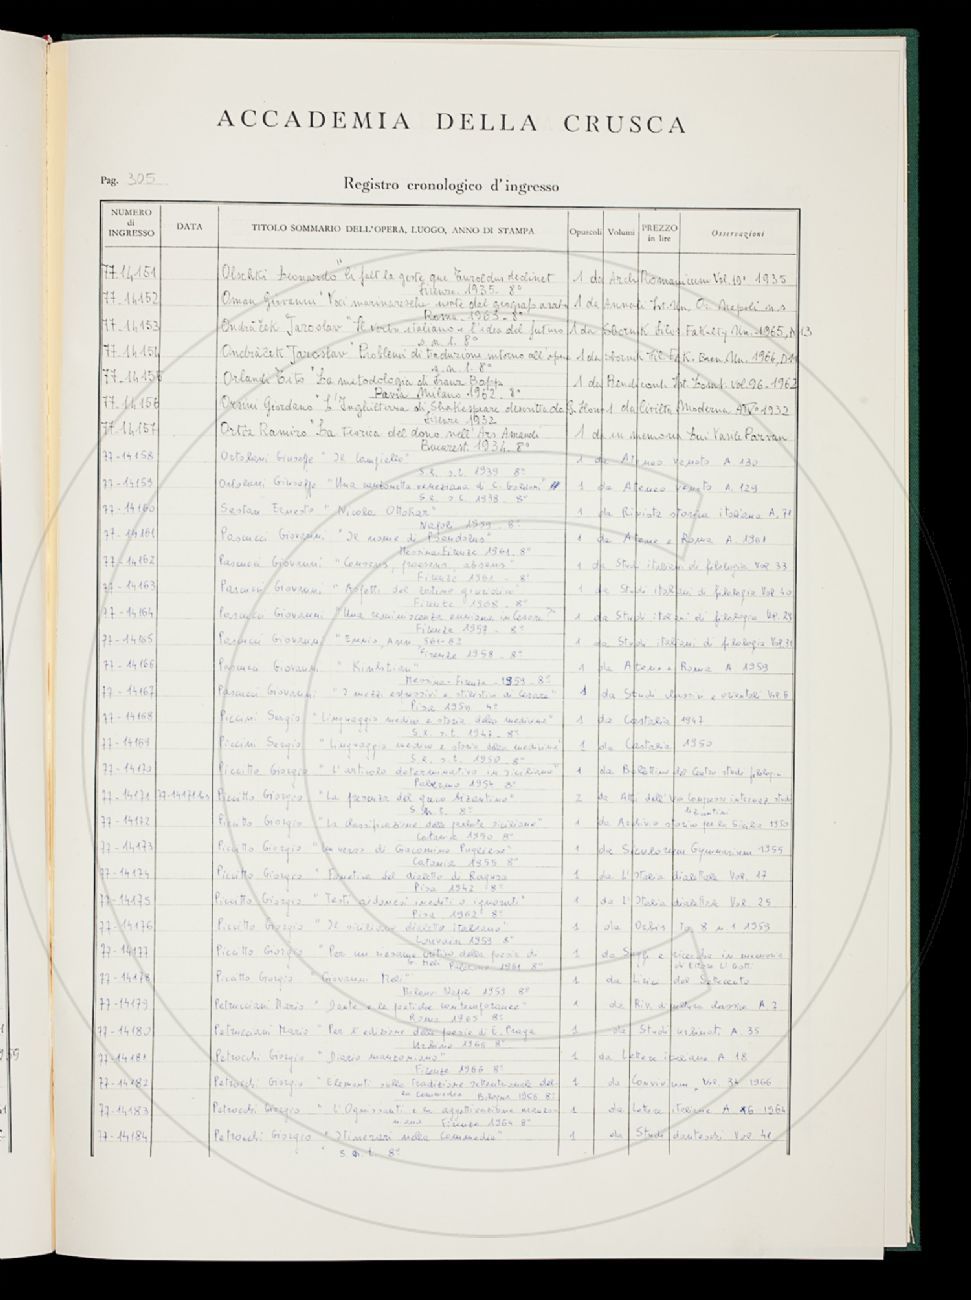 ACCADEMIA DELLA CRUSCA
Pag. 305
Registro cronologico d'ingresso
NUMERO di INGRESSO DATA TITOLO SOMMARIO DELL'OPERA, LUOGO, ANNO DI STAMPA Opuscoli Volumi PREZZO in lire Osservazioni
77.14151 Olschki Leonardo "Ci falt la geste que Turoldus declinet 1 da Arch. Romanicum Vol. 19° 1935
Firenze. 1935. 8°
77.14152 Oman Giovanni "Voci marinaresche 1 da Annali Ist. Un. O. Napoli n.s
Roma. 1963. 8°
77.14153 Ondráček Jaroslav "Il verbo italiano e l'idea del futuro 1 da Sborník 1965, A 13
s.n.t. 8°
77.14154 Ondráček Jaroslav "Problemi di traduzione intorno all' 1 da Sborník 1966,
s.n.t. 8°
77.14155 Orlando Tito "La metodologia di Franz Bopp 1 da Rendiconti Ist. Lomb. Vol. 96. 1962
Pavia Milano 1962. 8°
77.14156 Orsini Giordano "L'Inghilterra di Shakespeare 1 da Civiltà Moderna 1932
Firenze 1932
77.14157 Ortiz Ramiro "La teorica del dono nell'Ars Amandi 1 da in memoria lui Vasile Parvan
Bucarest. 1934. 8°
77-14158 Ortolani Giuseppe "Il Campiello" 1 da Ateneo veneto A. 130
S.l. s.t. 1939 8°
77-14159 Ortolani Giuseppe "Una canzonetta veneziana di C. Goldoni" 1 da Ateneo veneto A. 129
S.l. s.t. 1938. 8°
77-14160 Sestan Ernesto "Nicola Ottokar" 1 da Rivista storica italiana A. 71
Napoli 1959. 8°
77-14161 Pascucci Giovanni "Il nome di Pseudolus" 1 da Atene e Roma A. 1961
Messina-Firenze 1961. 8°
77-14162 Pascucci Giovanni "Consens, praesens, absens" 1 da Studi italiani di filologia Vol. 33
Firenze 1961 - 8°
77-14163 Pascucci Giovanni "Aspetti del latino giuridico" 1 da Studi italiani di filologia Vol. 40
Firenze 1968. 8°
77-14164 Pascucci Giovanni "Una reminiscenza enniana in Cesare?" 1 da Studi italiani di filologia Vol. 29
Firenze 1957. - 8°
77-14165 Pascucci Giovanni "Ennio, Ann., 561-62 1 da Studi italiani di filologia
Firenze 1958. 8°
77-14166 Pascucci Giovanni 1 da Atene e Roma A. 1959
Messina-Firenze 1959. 8°
77-14167 Pascucci Giovanni "I mezzi espressivi e stilistici di Cesare" 1 da Studi classici e orientali Vol. 6
Pisa 1950 4°
77-14168 Piccini Sergio "Linguaggio medico e storia della medicina" 1 da Castalia 1947
S.l. s.t. 1947. 8°
77-14169 Piccini Sergio "Linguaggio medico e storia della medicina" 1 da Castalia 1950
S.l. s.t. 1950. 8°
77-14170 Piccitto Giorgio "L'articolo determinativo in siciliano" 1 da Bollettino del Centro studi filologici
Palermo 1954 8°
77-14171 77-14171 bis Piccitto Giorgio "La presenza del greco bizantino" 2 da Atti dell' VIII Congresso internaz. studi bizantini
S.n.t. 8°
77-14172 Piccitto Giorgio "La classificazione delle parlate siciliane" 1 da Archivio storico per la Sicilia 1950
Catania 1950 8°
77-14173 Piccitto Giorgio "Un verso di Giacomino Pugliese" 1 da Siculorum Gymnasium 1955
Catania 1955 8°
77-14174 Piccitto Giorgio "Fonetica del dialetto di Ragusa 1 da L'Italia dialettale Vol. 17
Pisa 1942 8°
77-14175 Piccitto Giorgio "Testi aidonesi inediti o ignorati" 1 da L'Italia dialettale Vol. 25
Pisa 1962 8°
77-14176 Piccitto Giorgio "Il siciliano dialetto italiano" 1 da Orbis To. 8 n. 1 1959
Louvain 1959 8°
77-14177 Piccitto Giorgio "Per un riesame critico della poesia di G. Meli 1 da Saggi e ricerche in memoria di Ettore Li Gotti
Palermo 1961 8°
77-14178 Piccitto Giorgio "Giovanni Meli" 1 da Lirici del Settecento
Milano Napoli 1959 8°
77-14179 Petrucciani Mario "Dante e le poetiche contemporanee" 1 da Riv. di cultura classica A. 7
Roma 1965 8°
77-14180 Petrucciani Mario "Per l'edizione delle poesie di E. Praga 1 da Studi urbinati A. 35
Urbino 1966 8°
77-14181 Petrocchi Giorgio "Diario manzoniano" 1 da Lettere italiane A. 18
Firenze 1966 8°
77-14182 Petrocchi Giorgio "Elementi sulla tradizione settentrionale della Commedia 1 da Convivium, Vol. 34 1966
Bologna 1966 8°
77-14183 Petrocchi Giorgio "L'Ognissanti e la aggettivazione manzoniana 1 da Lettere italiane A. 16 1964
Firenze 1964 8°
77-14184 Petrocchi Giorgio "Itinerari nella Commedia" 1 da Studi danteschi Vol. 41
s.n.t. 8°